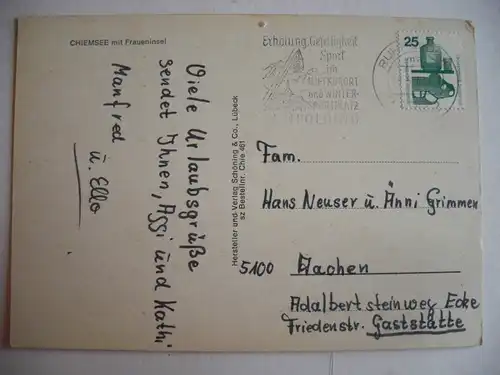 CHIEMSEE mit Fraueninsel
Viele Urlaubsgrüße
sendet Ihnen, Aggi und Kathi
Manfred
u. Ello
Hersteller und Verlag Schöning & Co., Lübeck
sz Bestellnr. Chie 481
Erholung, Geselligkeit
Sport
im
LUFTKURORT
und WINTER-
SPORTPLATZ
RUHPOLDING
25
Fam.
Hans Neuser u. Änni Grimmen
5100 Aachen
Adalbertsteinweg Ecke
Friedenstr. Gaststätte